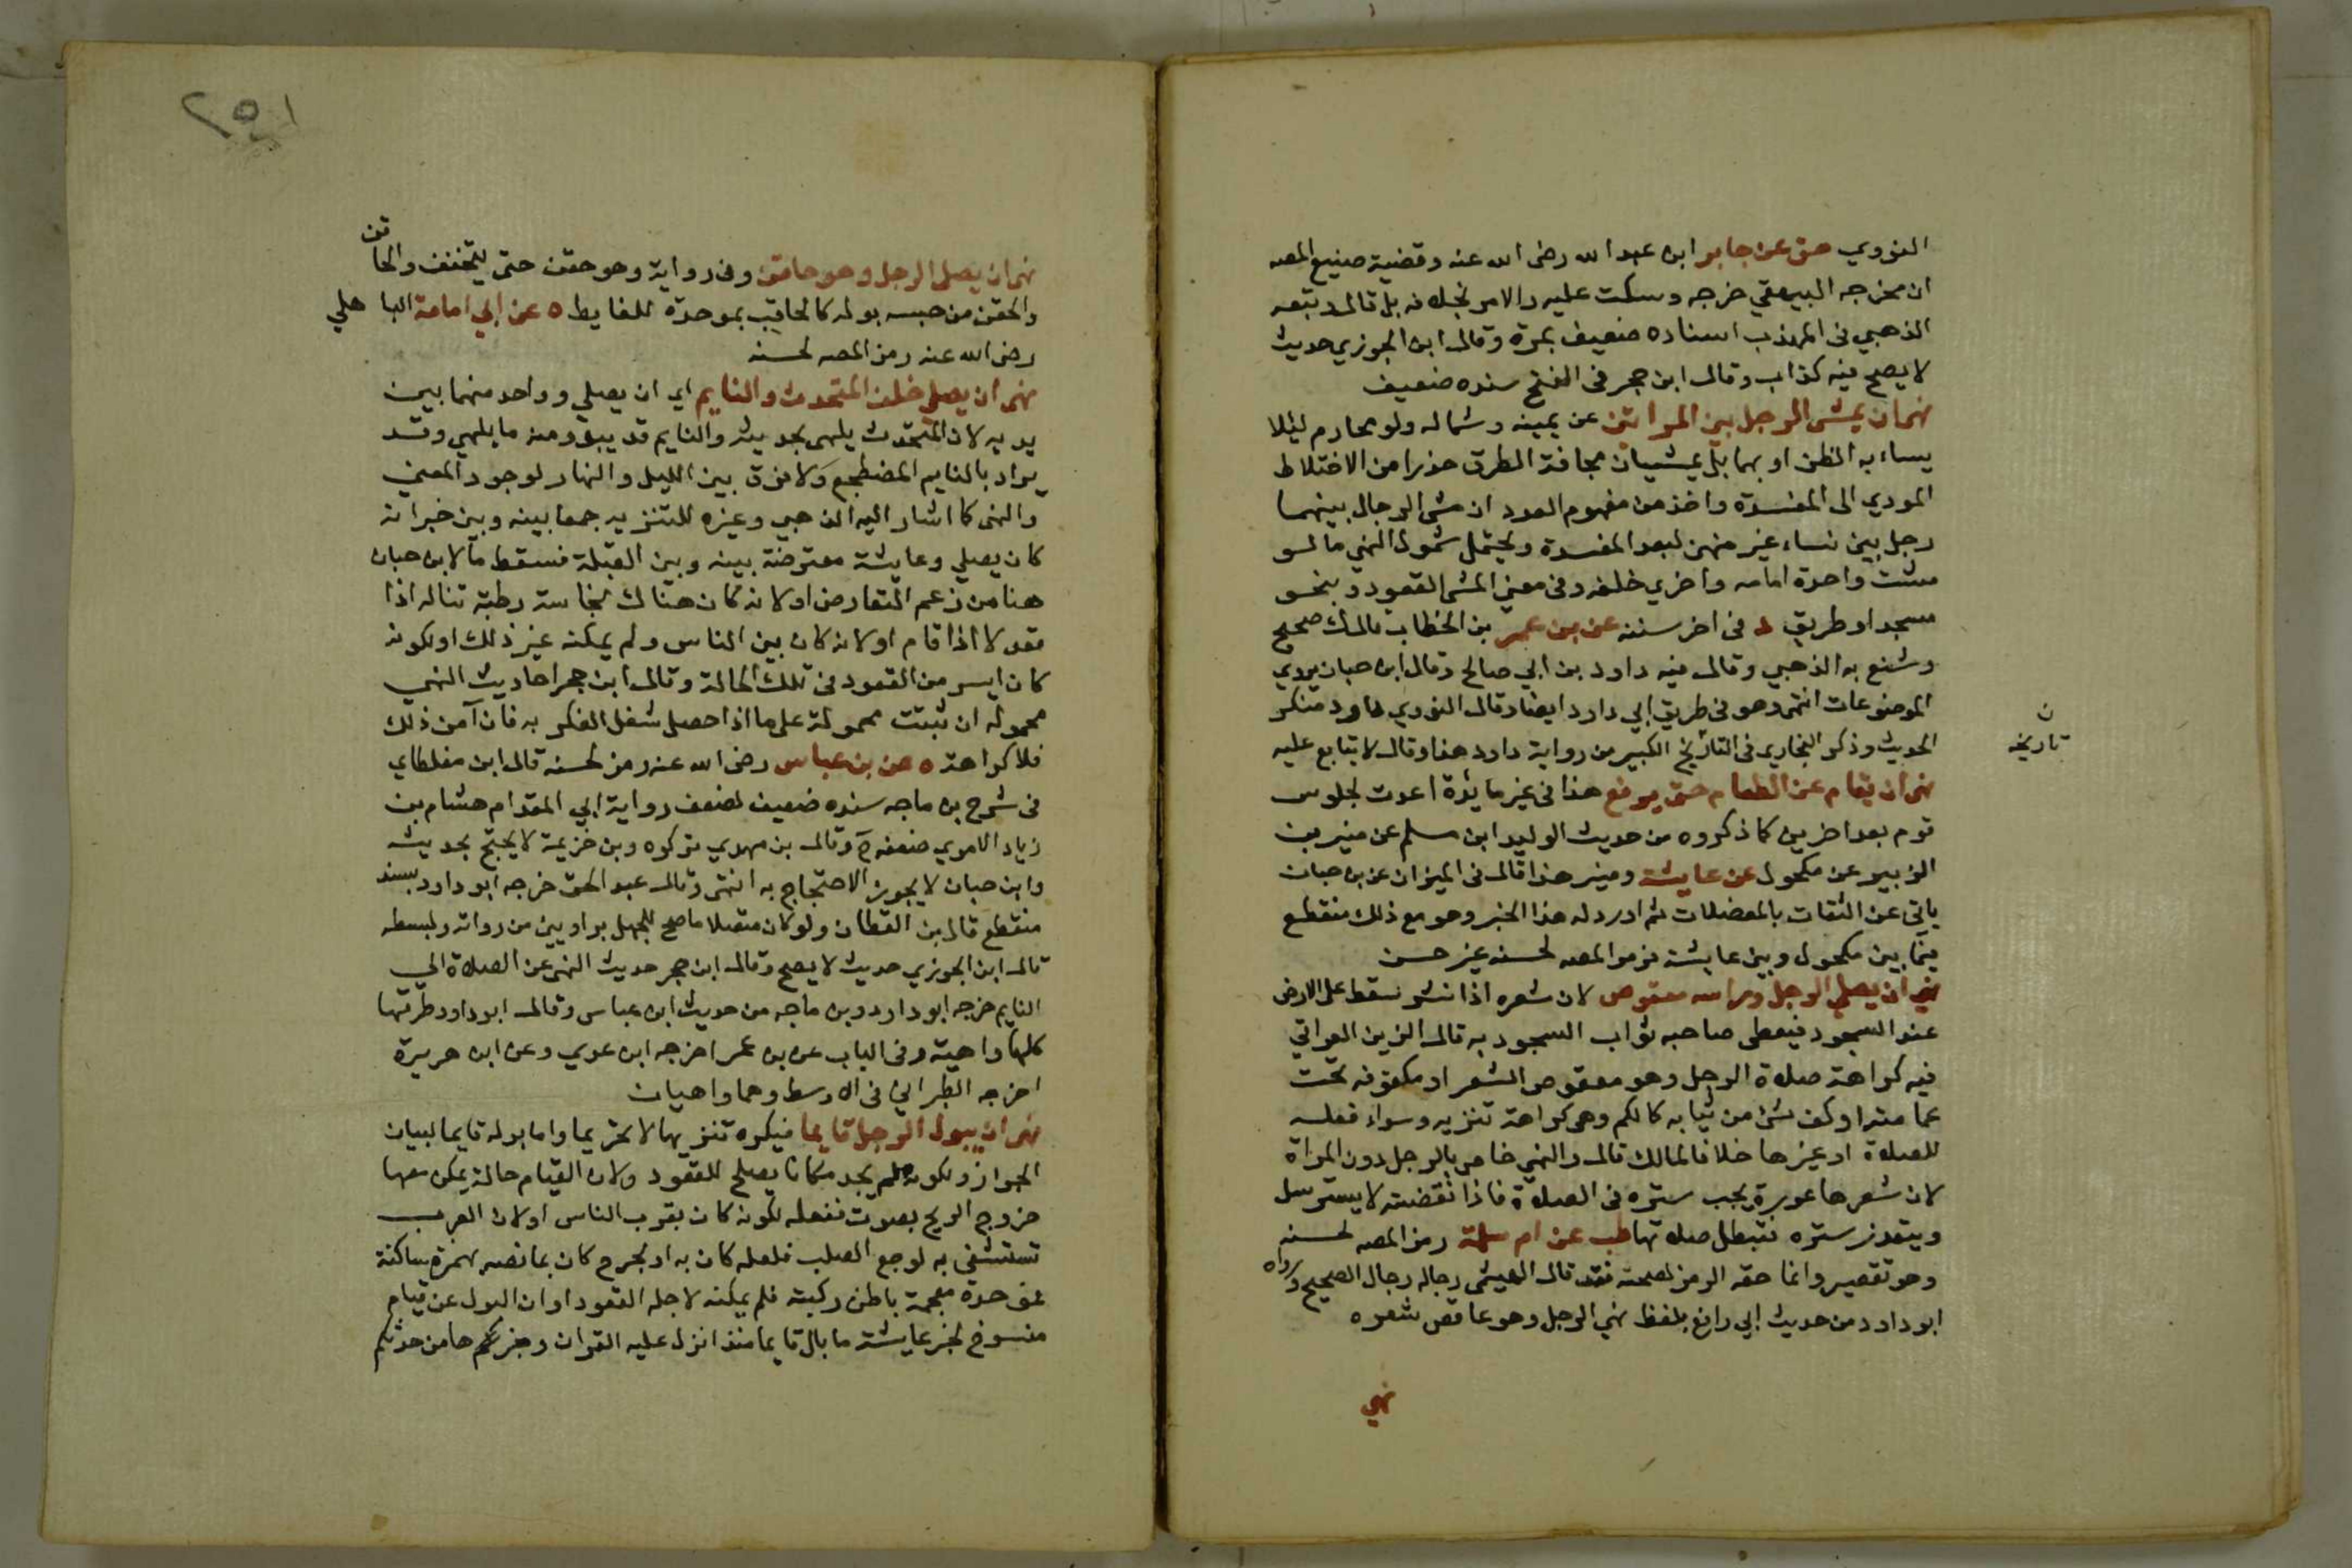 النووي هق عن جابر ابن عبد الله رضى الله عنه وقضية صنيع المصه
ان مخرجه البيهقي خرجه وسكت عليه والامر بخلافه بل قال وتبعه
الذهبي فى المهذب اسناده ضعيف بمرة وقال ابن الجوزي حديث
لا يصح فيه كذاب وقال ابن حجر فى الفتح سنده ضعيف
نهى ان يمشى الرجل بين المراتين عن يمينه وشماله ولو محارم ليلا
يساء به الظن او بهما بل يمشيان بحافة الطرق حذرا من الاختلاط
المودي الى المفسدة واخذ من مفهوم العدد ان مشى الرجال بينهما
رجل بين نساء غير منهن لبعد المفسدة ويحتمل شمول النهي ما لو
مشت واحدة امامه واخري خلفه وفى معنى المشى القعود و بنحو
مسجد او طريق د فى اخر سننه عن بن عمر بن الخطاب قال ك صحيح
وشنع به الذهبي وقال فيه داود بن ابي صالح وقال ابن حبان يروي
الموضوعات انتهى وهو فى طريق ابي داود ايضا وقال النووي داود منكر
الحديث وذكر البخاري فى التاريخ الكبير من رواية داود هذا وقال لا يتابع عليه
ن
تاريخه
نهى ان يقام عن الطعام حتى يرفع هذا فى غير مايدة اعدت لجلوس
قوم بعد اخرين كما ذكروه من حديث الوليد ابن مسلم عن منير بن
الزبير عن مكحول عن عايشة ومنير هذا قال فى الميزان عن بن حبان
ياتى عن الثقات بالمعضلات ثم اورد له هذا الخبر وهو مع ذلك منقطع
فيما بين مكحول وبين عايشة فرمز المصه لحسنه غير حسن
نهي ان يصلي الرجل وراسه معقوص لان شعره اذا نشر سقط على الارض
عند السجود فيعطى صاحبه ثواب السجود به قال الزين العراقي
فيه كراهة صلاة الرجل وهو معقوص الشعر او مكفوفه تحت
عمامته او كف شى من ثيابه كالكم وهى كراهة تنزيه وسواء فعله
للصلاة او غيرها خلافا لمالك قال والنهي خاص بالرجل دون المراة
لان شعرها عورة يجب ستره فى الصلاة فاذا نقضته لا يسترسل
ويتعذر ستره فتبطل صلاتها طب عن ام سلمة رمز المصه لحسنه
وهو تقصير وانما حقه الرمز لصحته فقد قال الهيثمى رجاله رجال الصحيح ورواه
ابو داود من حديث ابي رافع بلفظ نهي الرجل وهو عاقص شعره
نهي
٢٥١
نهى ان يصلى الرجل وهو حاقن وفى رواية وهو حقن حتى يتخفف والحاقن
والحقن من حبسه بوله كالحاقب بموحدة للغايط ٥ عن ابي امامة الباهلي
رضى الله عنه رمز المصه لحسنه
نهى ان يصلي خلف المتحدث والنايم اي ان يصلي وواحد منهما بين
يديه لان المتحدث يلهى بحديثه والنايم قد يبدو منه ما يلهي وقد
يراد بالنايم المضطجع ولا فرق بين الليل والنهار لوجود المعنى
والنهى كما اشار اليه الذهبي وغيره للتنزيه جمعا بينه وبين خبر انه
كان يصلي وعايشة معترضة بينه وبين القبلة فسقط ما لابن حبان
هنا من زعم التعارض او لانه كان هناك نجاسة رطبة تناله اذا
قعد لا اذا قام او لانه كان بين الناس ولم يمكنه غير ذلك او لكونه
كان ايسر من القعود فى تلك الحالة وقال ابن حجر احاديث النهي
محموله ان ثبتت محمولة على ما اذا حصل شغل الفكر به فان آمن ذلك
فلا كراهة ٥ عن بن عباس رضى الله عنه رمز لحسنه قال ابن مغلطاي
فى شرح بن ماجه سنده ضعيف لضعف رواية ابي المقدام هشام بن
زياد الاموي ضعفه خ وقال بن مهدي تركوه وبن خزيمة لا يحتج بحديثه
وابن حبان لا يجوز الاحتجاج به انتهى وقال عبد الحق خرجه ابو داود بسند
منقطع قال بن القطان ولو كان متصلا ما صح للجهل براويين من رواته وبسطه
قال ابن الجوزي حديث لا يصح وقال ابن حجر حديث النهى عن الصلاة الي
النايم خرجه ابو داود وبن ماجه من حديث ابن عباس وقال ابو داود طرقها
كلها واهية وفى الباب عن بن عمر اخرجه ابن عدي وعن ابى هريرة
اخرجه الطبراني فى الاوسط وهما واهيان
نهى ان يبول الرجل قايما فيكره تنزيها لا تحريما واما بوله قايما لبيان
الجواز ولكونه لم يجد مكانا يصلح للقعود ولان القيام حالة يمكن معها
خروج الريح بصوت ففعله لكونه كان بقرب الناس او لان العرب
تستشفى به لوجع الصلب فلعله كان به او لجرح كان بمابضه بهمزة ساكنة
فموحدة فمعجمة باطن ركبته فلم يمكنه لاجله القعود او ان البول عن قيام
منسوخ لخبر عايشة ما بال قايما منذ انزل عليه القران وخبركم ها من حدثكم